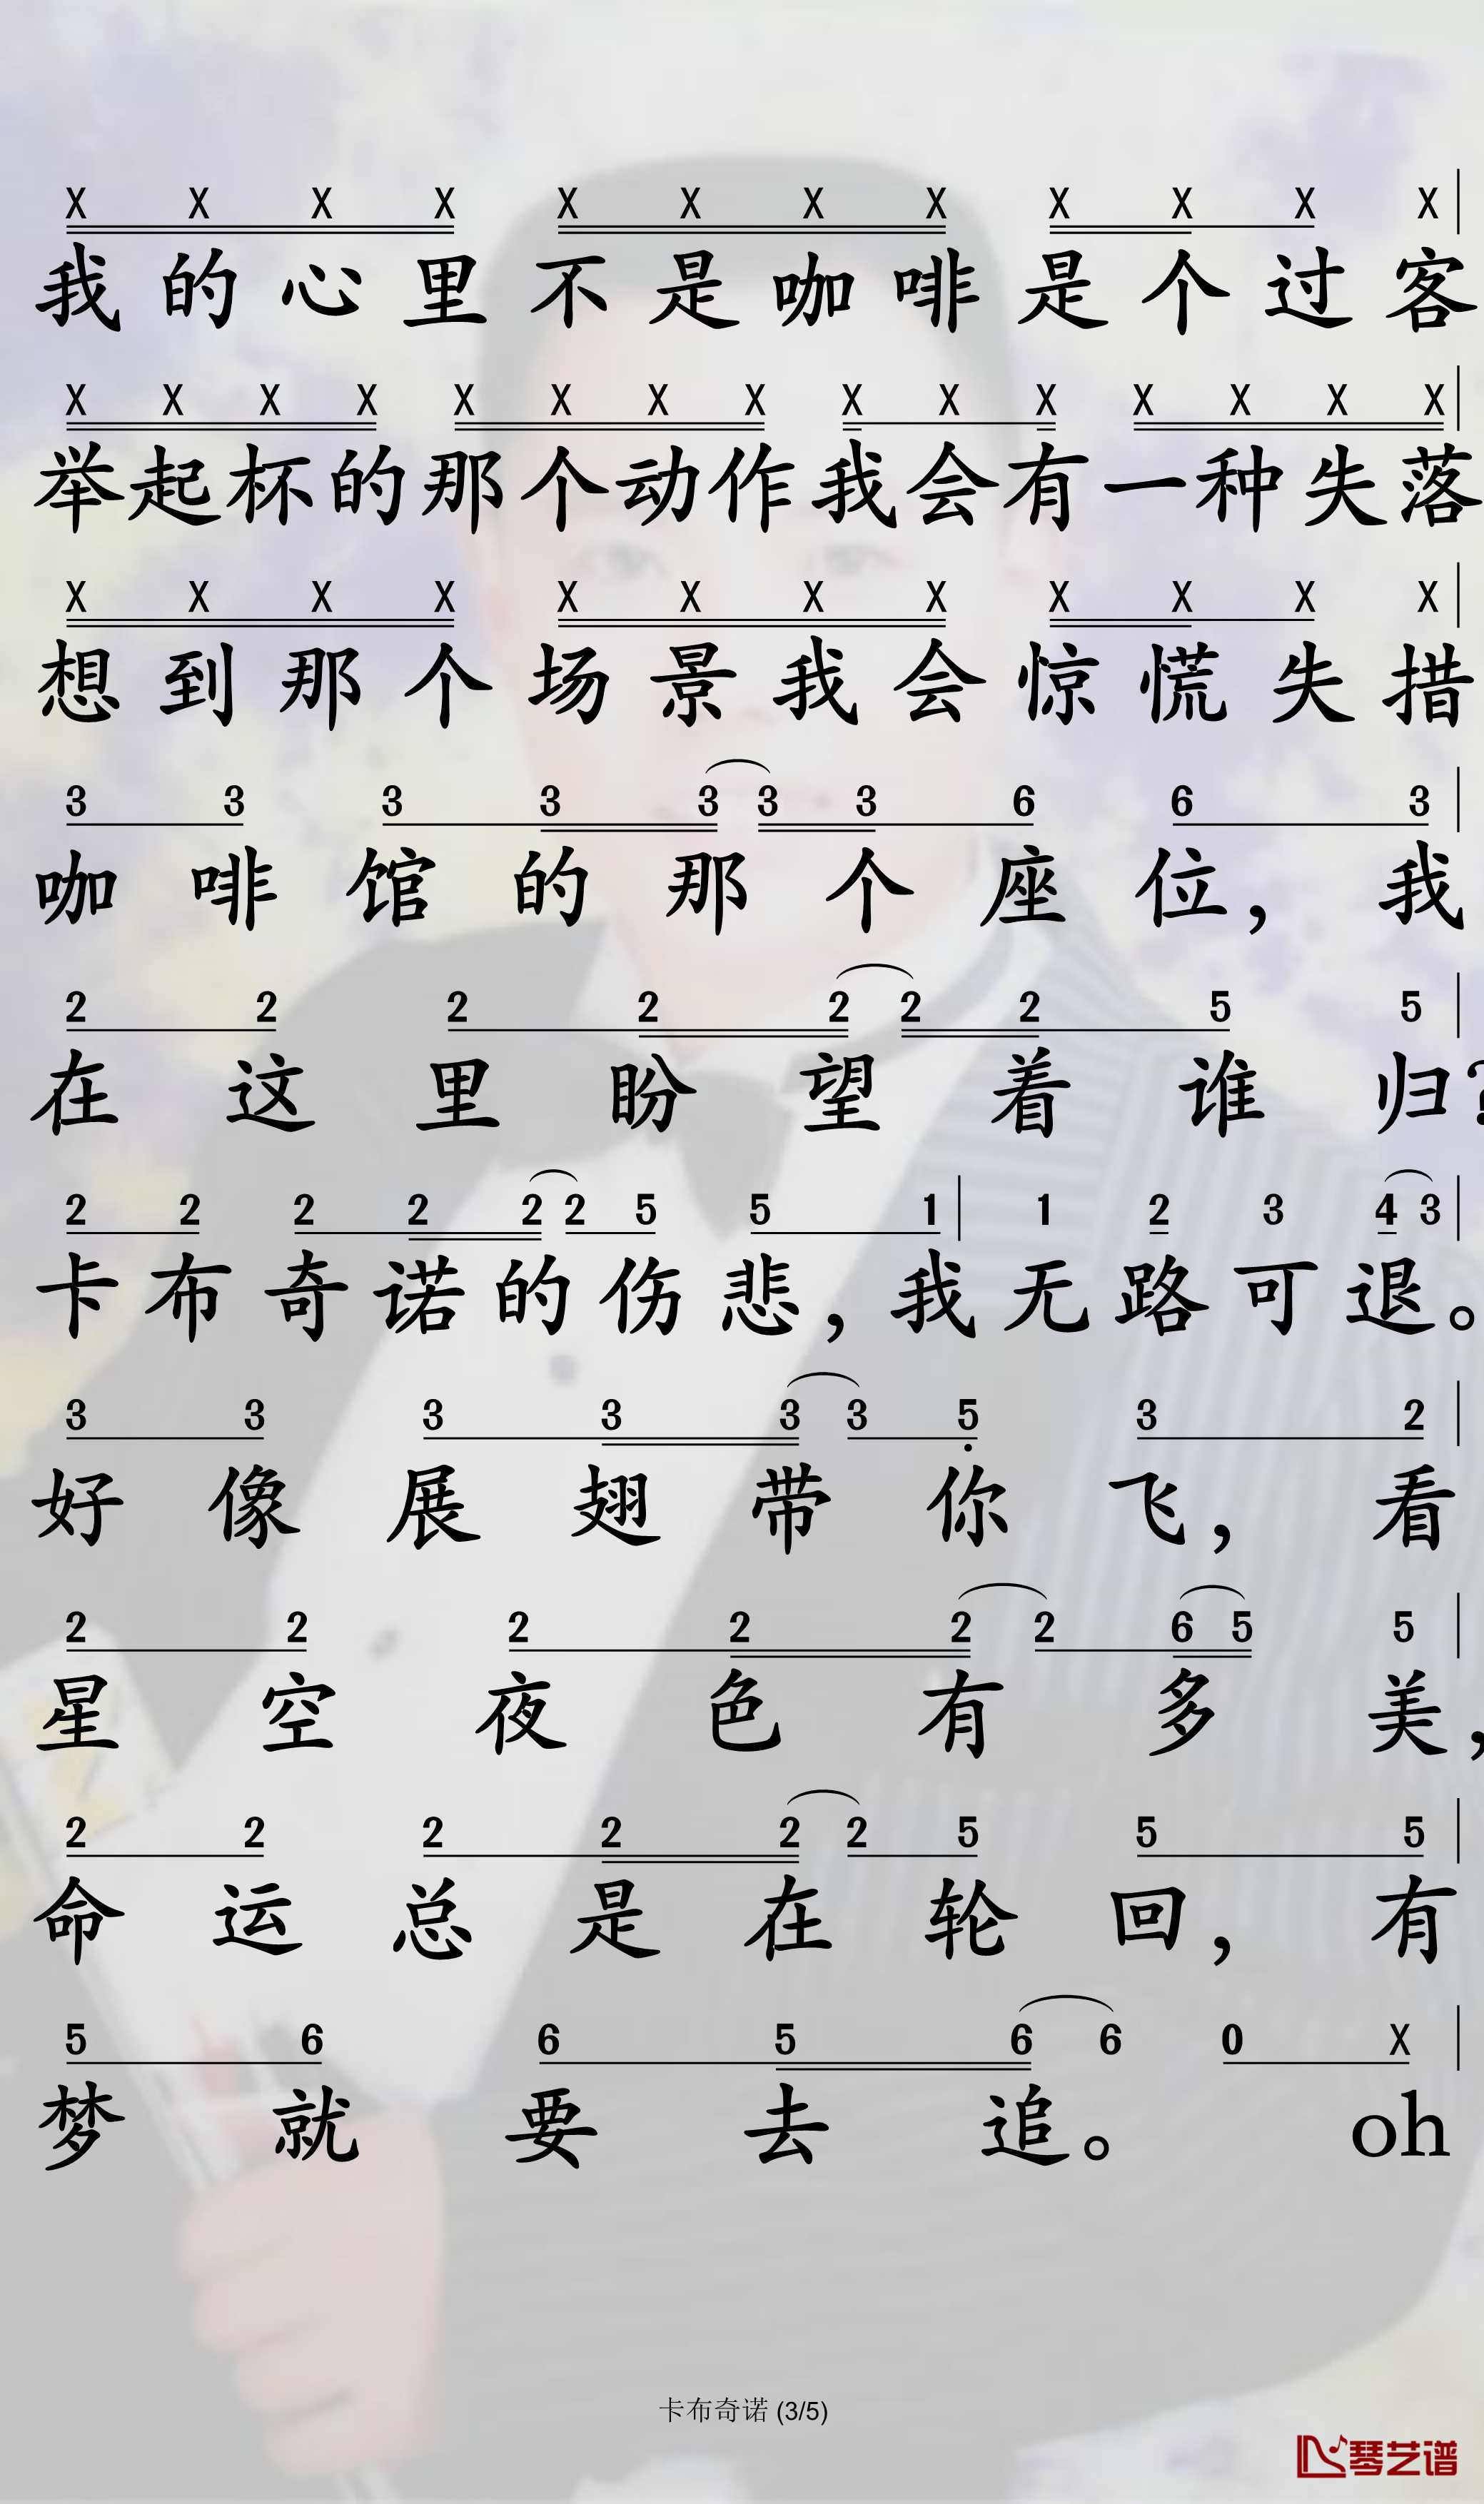 X X X X X X X X X X X X
我的心里不是咖啡是个过客
X X X X X X X X X X X X X X X
举起杯的那个动作我会有一种失落
X X X X X X X X X X X X
想到那个场景我会惊慌失措
3 3 3 3 3 3 3 6 6 3
咖啡馆的那个座位，我
2 2 2 2 2 2 2 5 5
在这里盼望着谁归？
2 2 2 2 2 2 5 5 1 1 2 3 4 3
卡布奇诺的伤悲，我无路可退。
3 3 3 3 3 3 5 3 2
好像展翅带你飞，看
2 2 2 2 2 2 6 5 5
星空夜色有多美，
2 2 2 2 2 2 5 5 5
命运总是在轮回，有
5 6 6 5 6 6 0 X
梦就要去追。oh
卡布奇诺 (3/5)
琴艺谱